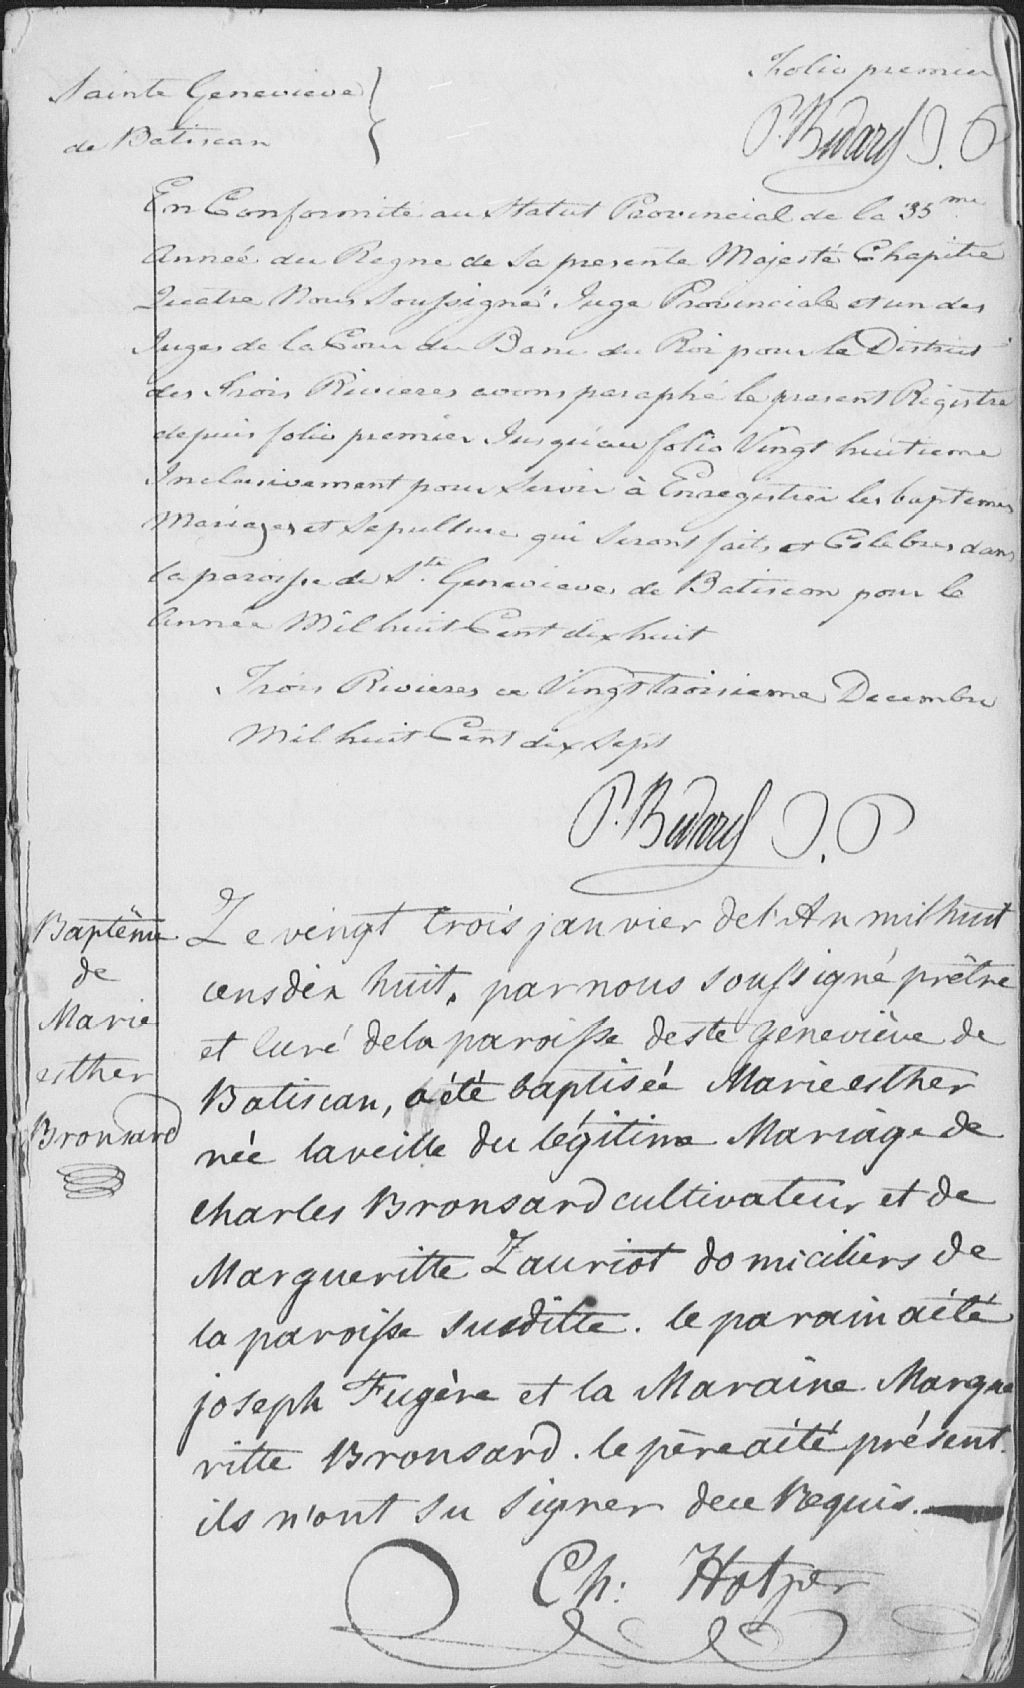 Folio premier
Sainte Genevieve
de Batiscan
P. Bedard J. P
En Conformité au Statut Provincial de la 35me
Année du Regne de Sa presente Majesté Chapitre
Quatre Nous Soussigné Juge Provinciale et un des
Juges de la Cour du Banc du Roi pour le District
des Trois Rivieres avons paraphé le present Registre
depuis folio premier Jusqu'au folio Vingt huitieme
Inclusivement pour Servir à Enregistrer les baptemes
Mariages et Sepulture qui Seront faits et Celebres dans
la paroisse de Ste Genevieve de Batiscan pour le
Année Mil huit Cent dix huit
Trois Rivieres ce Vingt troisieme Decembre
Mil huit Cent dix Sept
P. Bedard J. P
Baptême
de
Marie
esther
Bronsard
Le vingt trois janvier de l'An mil huit
cens dix huit, par nous soussigné prêtre
et curé de la paroisse de ste geneviève de
Batiscan, a été baptisée Marie esther
née la veille du légitime Mariage de
charles Bronsard cultivateur et de
Margueritte Lauriot domiciliers de
la paroisse susditte. le parain a été
joseph Fugère et la Maraine Margue
ritte Bronsard. le père a été présent.
ils n'ont su signer de ce Requis.
Ch: Hotper